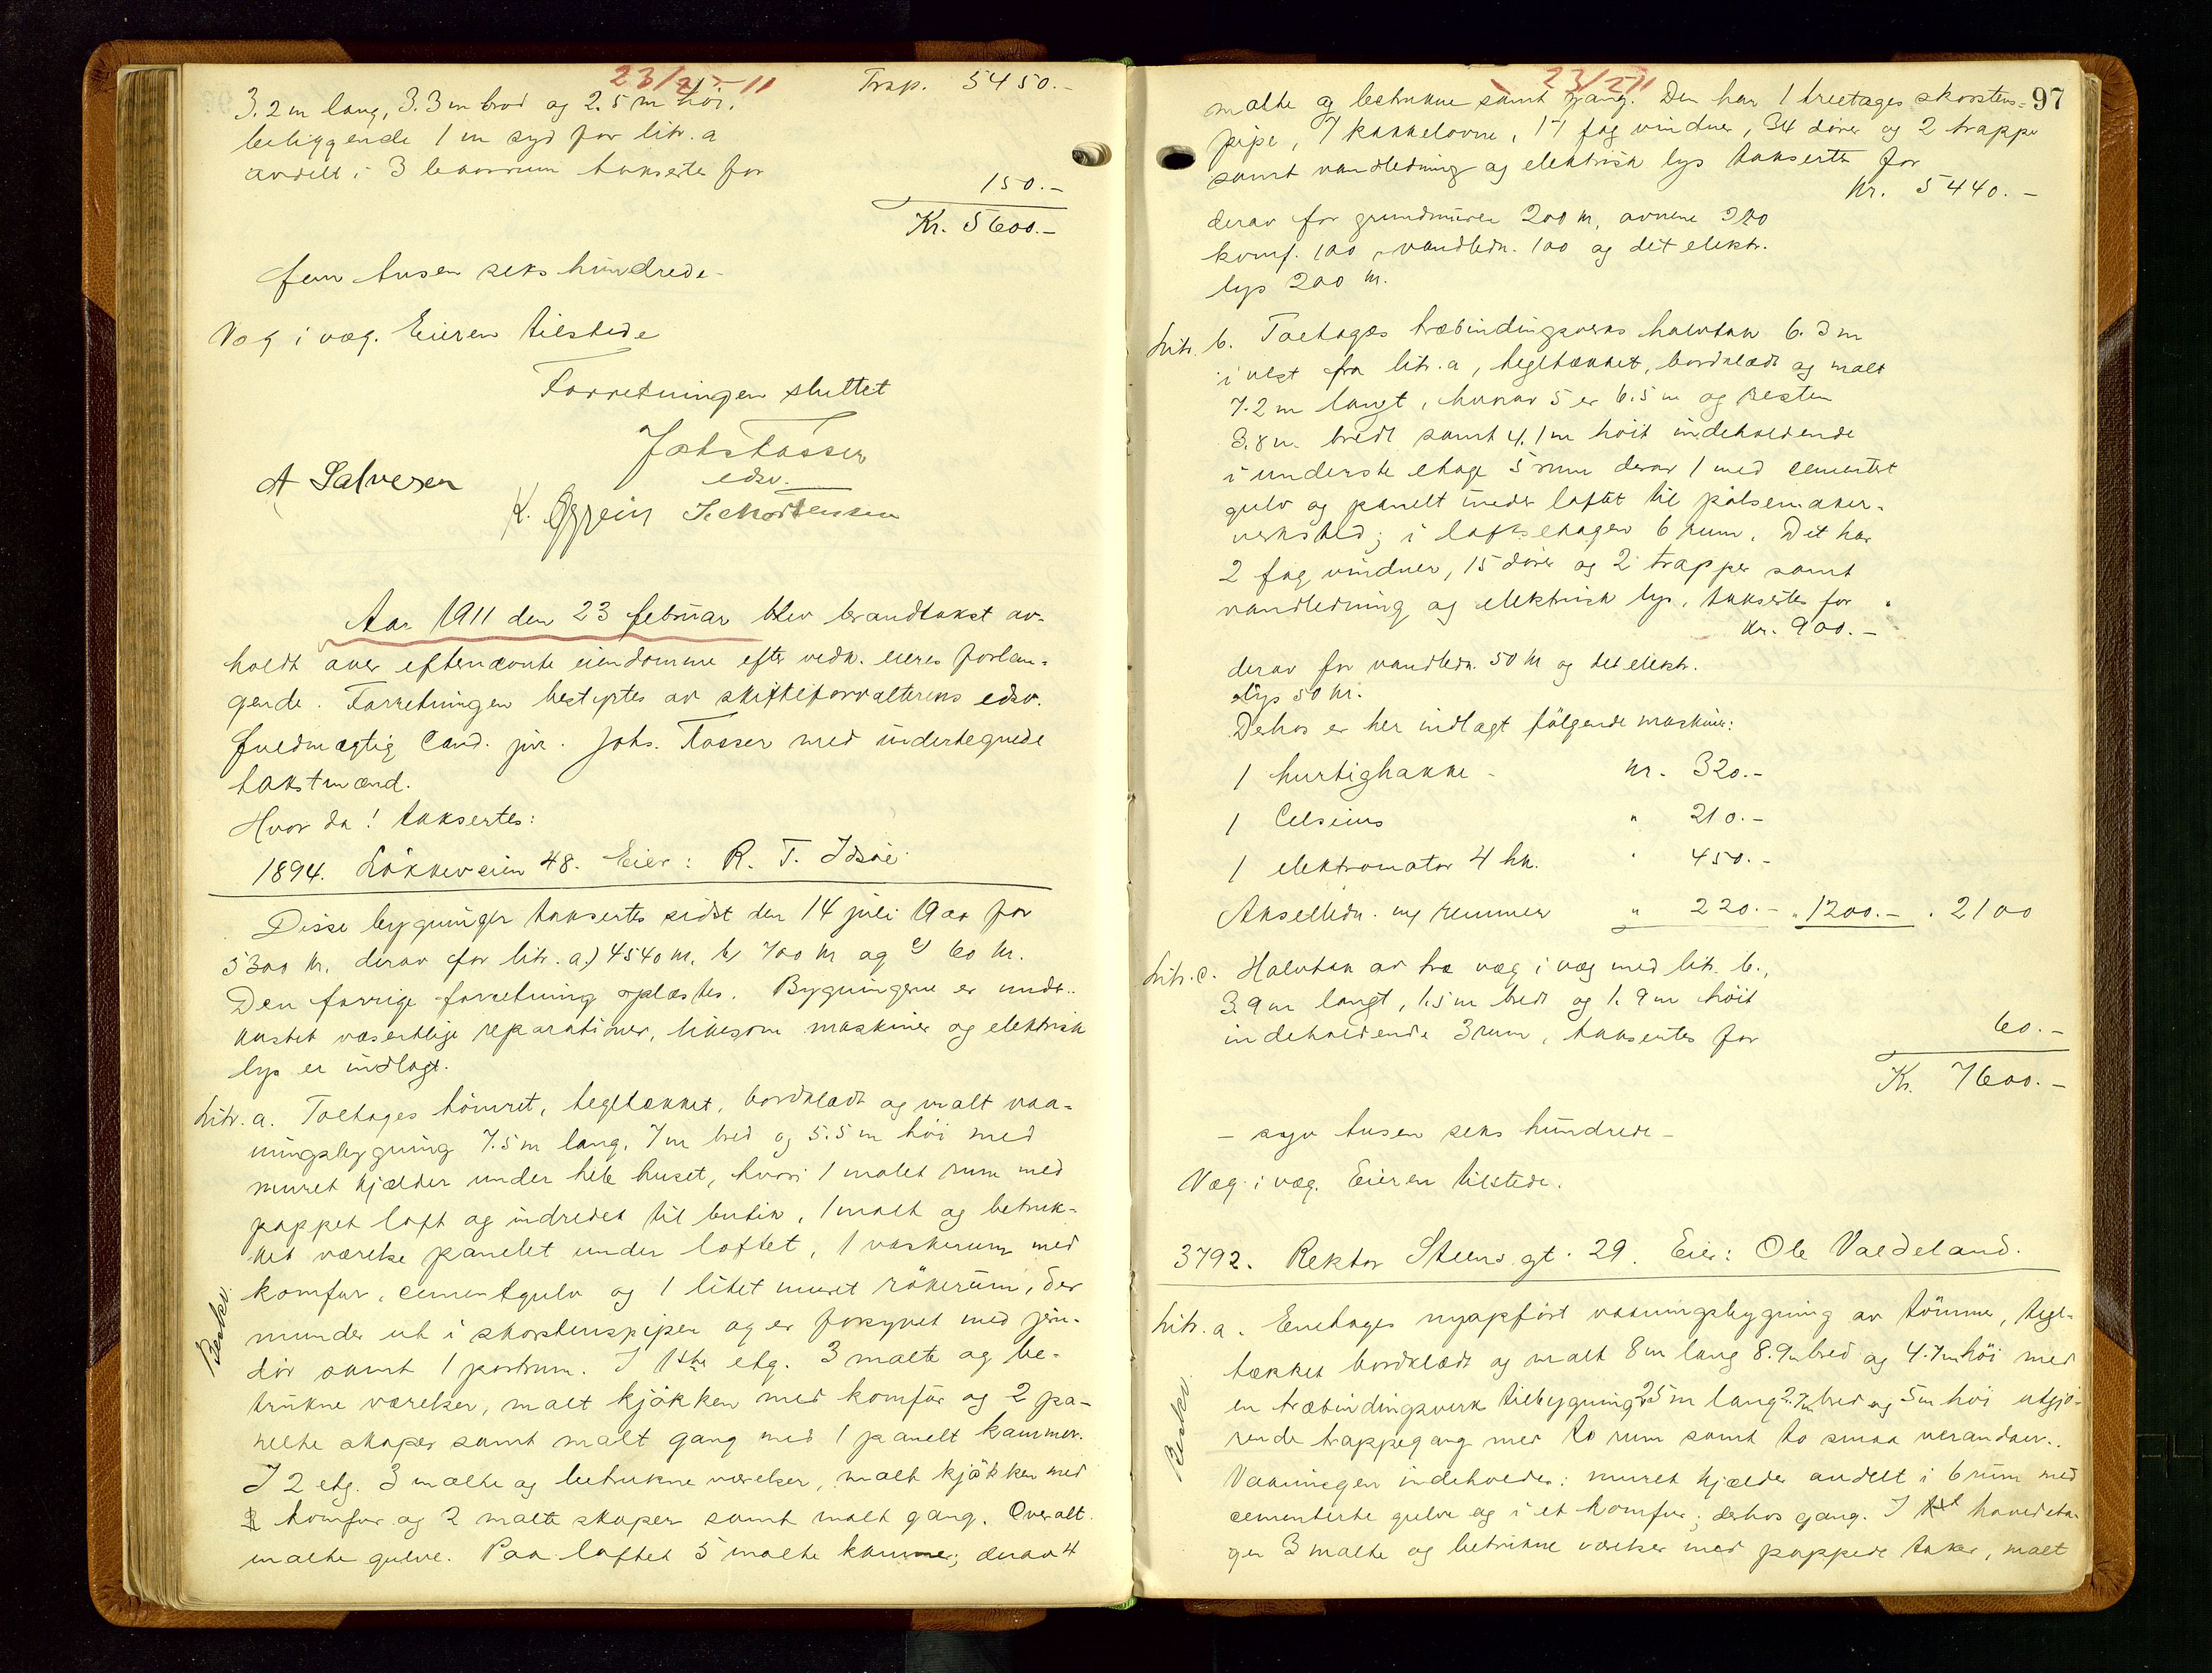 23/2-11
Trsp. 5450.-
3.2 m lang, 3.3 m bred og 2.5 m höi.
beliggende 1 m syd for litr. a
avdelt i 3 bodrum taksertes for
150.-
Kr. 5600.-
fem tusen seks hundrede-
Væg i væg. Eieren tilstede
Forretningen sluttet
Johs Tasser
edsv.
A Salvesen
K. J. Mortensen
Aar 1911 den 23 februar blev brandtakst av-
holdt over eftenævnte eiendomme efter vedk. eieres forlan-
gende. Forretningen bestyrtes av skifteforvalterens edsv.
fuldmægtig Cand. jur. Johs. Tasser med undertegnede
takstmænd.
Hvor da! taksertes:
1894. Lökkeveien 48. Eier: R. T. Idsöe
Disse bygninger taksertes sidst den 14 juli 1900 for
5300 kr. derav for litr. a.) 4540 kr. b) 700 kr og c) 60 kr.
Den forrige forretning oplæstes. Bygningerne er under-
kastet væsentlige reparationer, likesom maskiner og elektrisk
lys er indlagt.
Litr. a. Toetages tömret, tegltækket, bordklædt og malt vaa-
ningsbygning 7.5 m lang, 7 m bred og 5.5 m höi med
muret kjælder under hele huset, hvori 1 malet rum med
pappet loft og indredet til butik, 1 malt og betruk-
ket værelse panelet under loftet, 1 vaskerum med
komfur, cementgulv og 1 litet muret rökerum, der
munder ut i skorstenspipen og er forsynet med jern-
dör samt 1 portrum. I 1ste etg. 3 malte og be-
trukne værelser, malt kjökken med komfur og 2 pa-
nelte skaper samt malt gang med 1 panelt kammer.
I 2 etg. 3 malte og betrukne værelser, malt kjökken med
komfur og 2 malte skaper samt malt gang. Overalt
malte gulve. Paa loftet 5 malte kammer, derav 4
Beskr.
23/2-11
97
malte og betrukne samt gang. Den har 1 treetages skorstens-
pipe, 7 kakkelovne, 17 fag vinduer, 34 dörer og 2 trapper
samt vandledning og elektrisk lys taksertes for
Kr. 5440.-
derav for grundmuren 200 kr, ovnene
komf. 100, vandledn. 100 og det elektr.
lys 200 kr.
Litr. b. Toetages træbindingsverks halvtak 6.3 m
i vest fra litr. a, tegltækket, bordklædt og malt
7.2 m langt, hvorav 5 er 6.5 m og resten
3.8 m. bredt samt 4.1 m höit indeholdende
i underste etage 5 rum derav 1 med cementert
gulv og panelt under loftet til pölsemaker-
verksted; i loftsetagen 6 rum. Det har
2 fag vinduer, 15 dörer og 2 trapper samt
vandledning og elektrisk lys, taksertes for
Kr. 900.-
derav for vandledn. 50 kr og det elektr.
lys 50 kr.
Derhos er her indlagt fölgende maskiner:
1 hurtighakke - kr. 320.-
1 Celsius " 210.-
1 elektromotor 4 hk. " 450.-
Akselledn. og remmer " 220.- " 1200.- " 2100
Litr. c. Halvtak av træ væg i væg med litr. b.,
3.9 m langt, 1.5 m bredt og 1.9 m höit
indeholdende 3 rum, taksertes for
60.-
Kr. 7600.-
- syv tusen seks hundrede -
Væg i væg. Eieren tilstede.
3792. Rektor Steens gt. 29. Eier: Ole Valdeland.
Litr. a. Enetages nyopfört vaaningsbygning av tömmer, tegl-
tækket bordklædt og malt 8 m lang 8.9 m bred og 4.7 m höi med
en træbindingsverk tilbygning 2.5 m lang 2.7 m bred og 5 m höi utgjö-
rende trappegang med to rum samt to smaa verandaer.
Vaaningen indeholder: muret kjælder avdelt i 6 rum med
cementerte gulve og i et komfur; derhos gang. I hovedeta-
gen 3 malte og betrukne værelser med pappede taker, malt
Beskr.